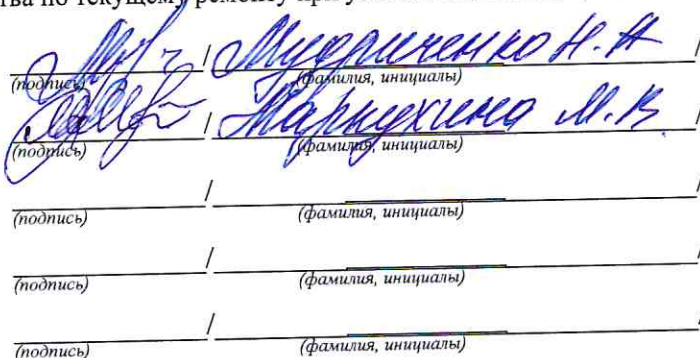 тва по текущему ремонту при у
/ Мудриченко Н.А /
(подпись) (фамилия, инициалы)
/ Жарнухина М.В. /
(подпись) (фамилия, инициалы)
/ /
(подпись) (фамилия, инициалы)
/ /
(подпись) (фамилия, инициалы)
/ /
(подпись) (фамилия, инициалы)